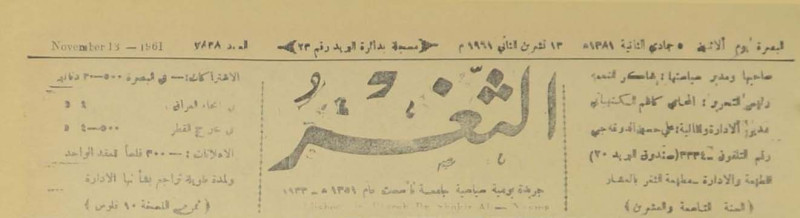 البصرة يوم الاثنين ٥ جمادي الثانية ١٣٨١ھ ١٣ تشرين الثاني ١٩٦١ م مسجلة بدائرة البريد رقم ٢٣ العدد ٧٨٣٨ November 13 — 1961
صاحبها ومدير سياستها : شاكر النعمة
رئيس التحرير : المحامي كاظم
مدير الادارة والمالية : علي حسين
رقم التلفون ـ ٣٣٤ (صندوق البريد ٢٠)
الطبعة والادارة ـ مطبعة الثغر بالعشار
(السنة التاسعة والعشرون)
الثغر
جريدة يومية سياسية جامعة تأسست عام ١٣٥١ ھ ـ ١٩٣٣
الاشتراكات :— في البصرة ٥٠٠—٣ دنانير
في انحاء العراق ٤
في خارج القطر ٥٠٠—٤
الاعلانات :— ٣٠٠ فلساً للعقد الواحد
ولمدة طويلة تراجع بشأنها الادارة
(ثمن النسخة ١٠ فلوس)